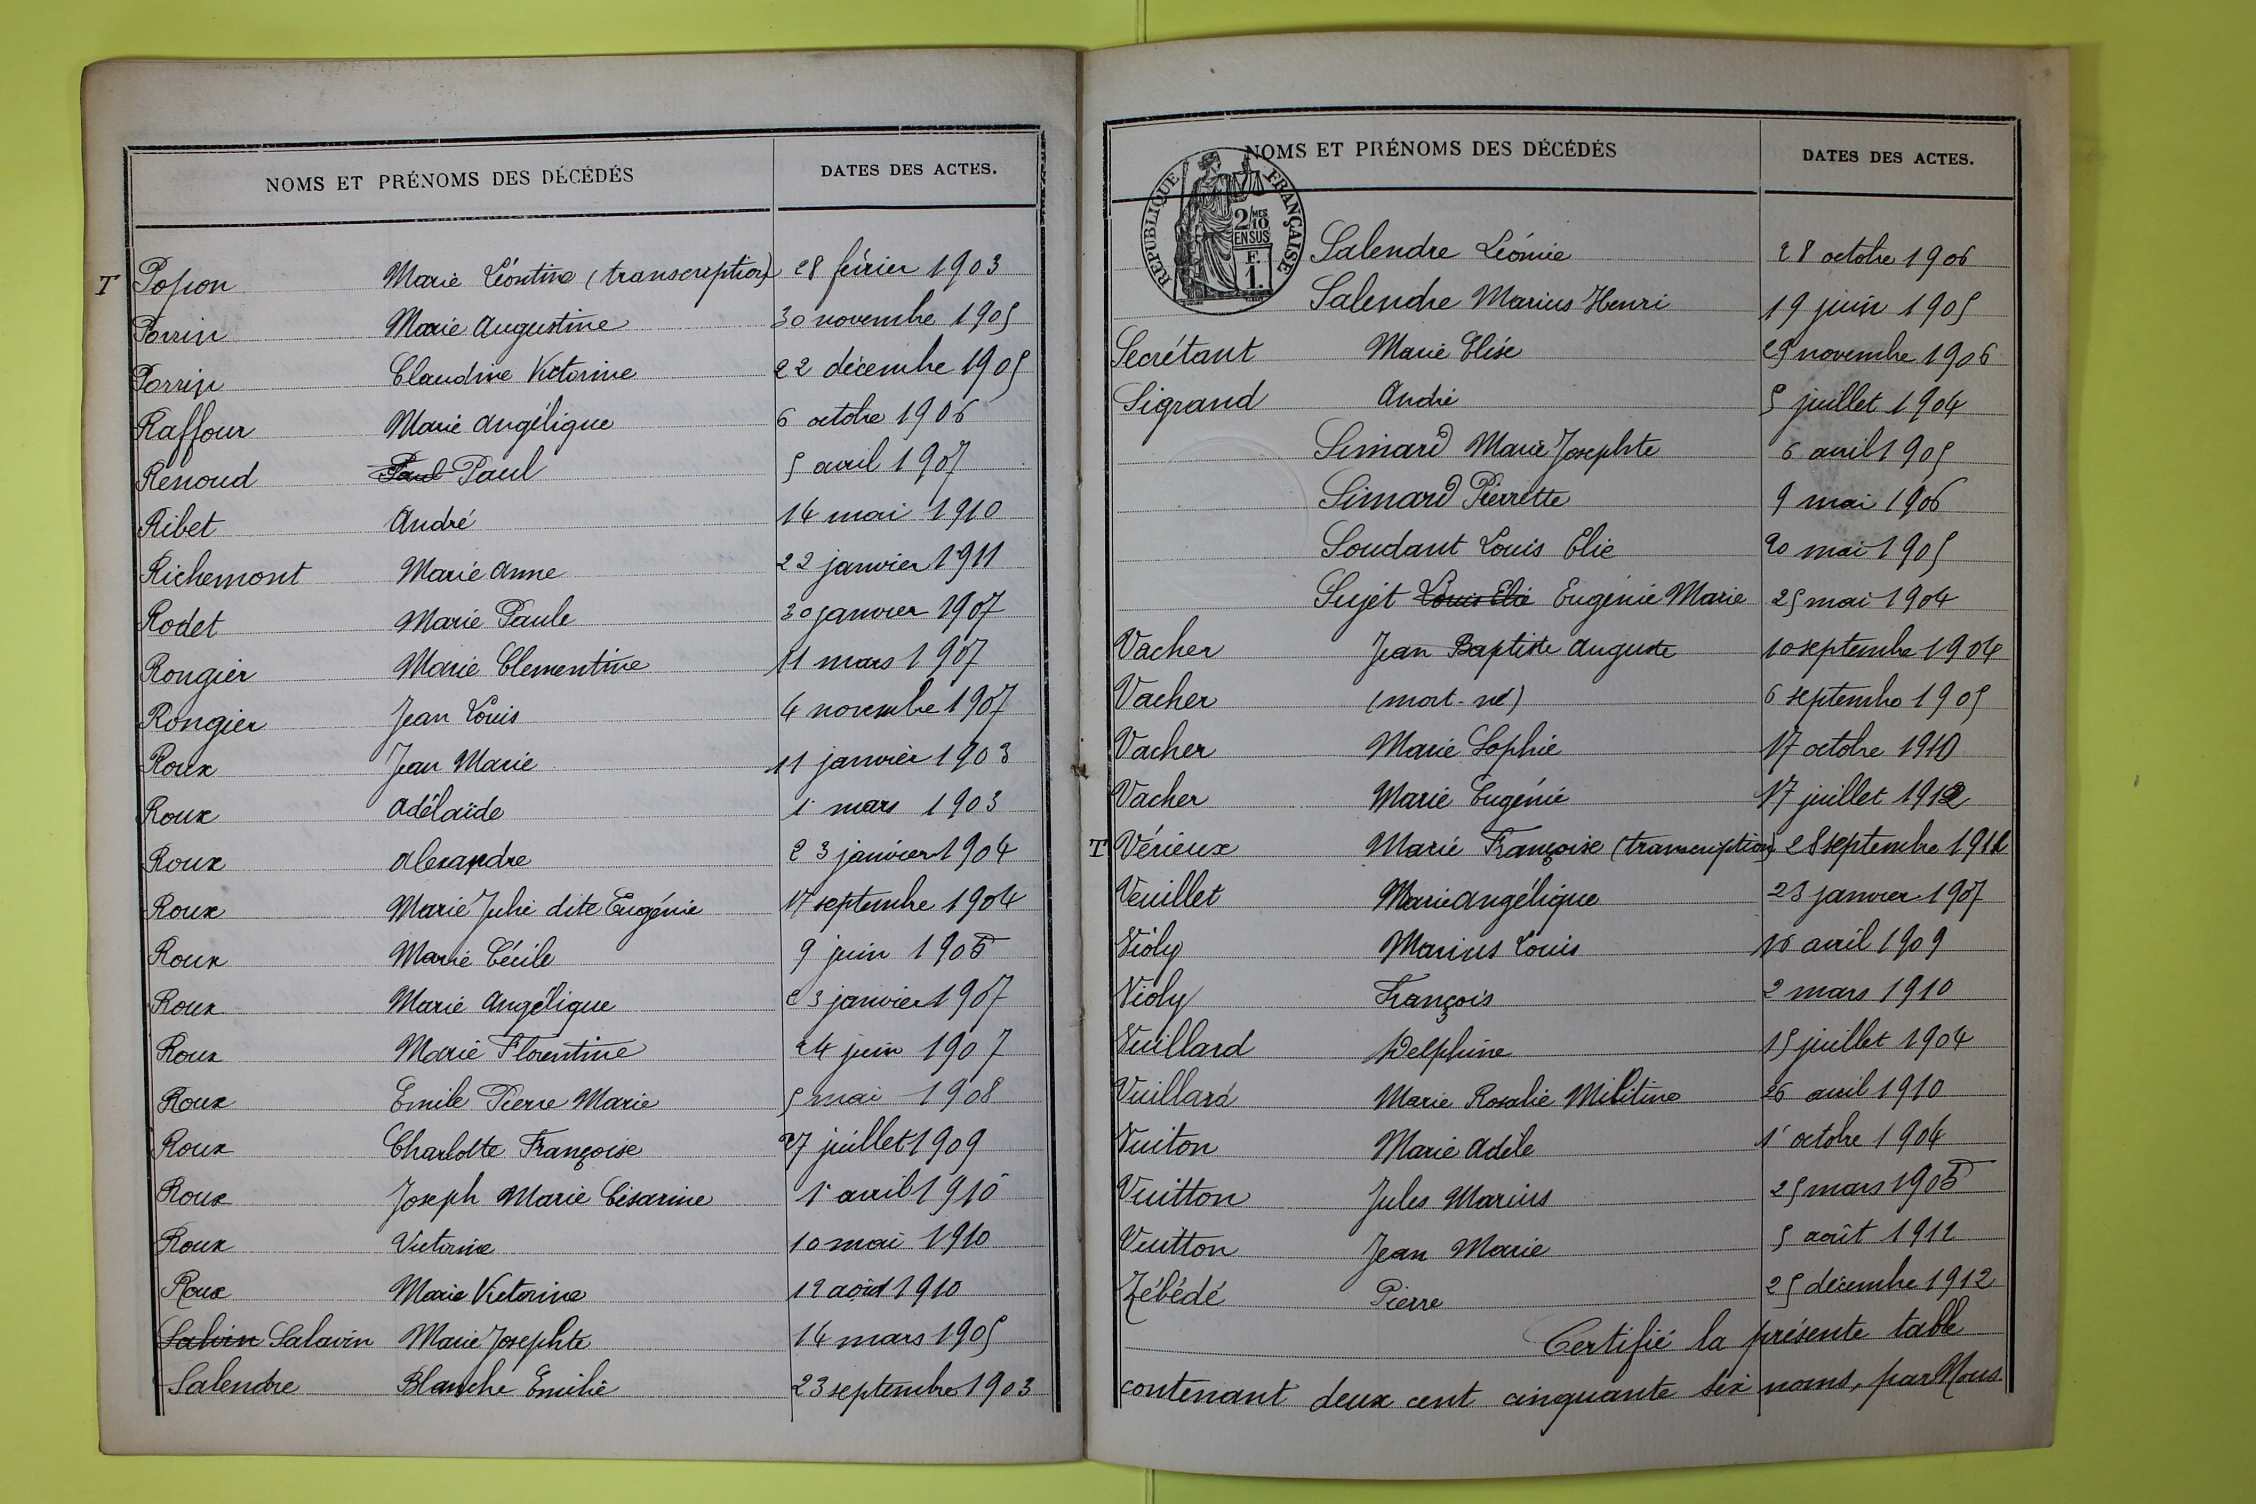 NOMS ET PRÉNOMS DES DÉCÉDÉS DATES DES ACTES.
T Popon Marie Léontine (transcription) 28 février 1903
Porrin Marie Augustine 30 novembre 1905
Porrin Claudine Victorine 22 décembre 1905
Raffour Marie Angélique 6 octobre 1906
Renoud Paul Paul 5 avril 1907
Ribet André 14 mai 1910
Richemont Marie Anne 22 janvier 1911
Rodet Marie Paule 30 janvier 1907
Rongier Marie Clementine 11 mars 1907
Rongier Jean Louis 4 novembre 1907
Roux Jean Marie 11 janvier 1903
Roux Adélaïde 1r mars 1903
Roux Alexandre 23 janvier 1904
Roux Marie Julie dite Eugénie 17 septembre 1904
Roux Marie Cécile 9 juin 1905
Roux Marie Angélique 23 janvier 1907
Roux Marie Florentine 24 juin 1907
Roux Emile Pierre Marie 5 mai 1908
Roux Charlotte Françoise 27 juillet 1909
Roux Joseph Marie Césarine 1r avril 1910
Roux Victorine 10 mai 1910
Roux Marie Victorine 12 août 1910
Salvin Salavin Marie Josephte 14 mars 1905
Salendre Blanche Emilie 23 septembre 1903
NOMS ET PRÉNOMS DES DÉCÉDÉS DATES DES ACTES.
RÉPUBLIQUE FRANÇAISE
2/10 MES
EN SUS
F.
1.
Salendre Léonie 28 octobre 1906
Salendre Marius Henri 19 juin 1905
Secrétant Marie Elise 29 novembre 1906
Sigrand André 5 juillet 1904
Simard Marie Josephte 6 avril 1905
Simard Pierrette 9 mai 1906
Soudant Louis Elie 20 mai 1905
Sujet Louis Elie Eugénie Marie 25 mai 1904
Vacher Jean Baptiste Auguste 10 septembre 1904
Vacher (mort-né) 6 septembre 1905
Vacher Marie Sophie 17 octobre 1910
Vacher Marie Eugénie 17 juillet 1912
T Vérieux Marie Françoise (transcription) 28 septembre 1912
Veuillet Marie Angélique 23 janvier 1907
Violy Marius Louis 16 avril 1909
Violy François 2 mars 1910
Vuillard Delphine 15 juillet 1904
Vuillard Marie Rosalie Militine 26 avril 1910
Vuiton Marie Adèle 1r octobre 1904
Vuitton Jules Marius 25 mars 1905
Vuitton Jean Marie 5 août 1912
Zébédé Pierre 25 décembre 1912
Certifié la présente table
contenant deux cent cinquante six noms, par Nous